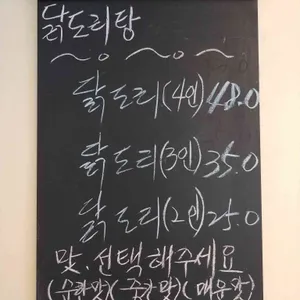 닭도리탕
~o~o~
닭도리(4인)48.0
닭도리(3인)35.0
닭도리(2인)25.0
맛.선택해주세요
(순한맛)(중간맛)(매운맛)